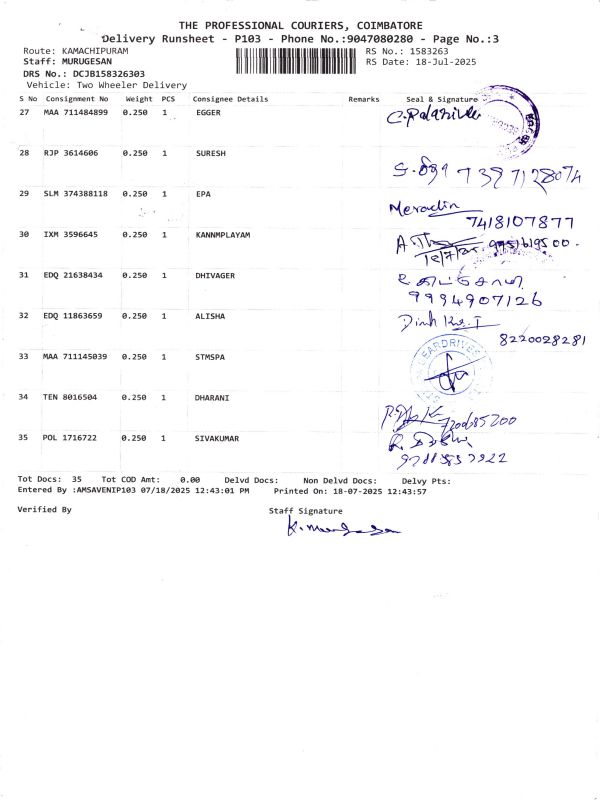 THE PROFESSIONAL COURIERS, COIMBATORE
Delivery Runsheet - P103 - Phone No.:9047080280 - Page No.:3
Route: KAMACHIPURAM RS No.: 1583263
Staff: MURUGESAN RS Date: 18-Jul-2025
DRS No.: DCJB158326303
Vehicle: Two Wheeler Delivery
S No Consignment No Weight PCS Consignee Details Remarks Seal & Signature
27 MAA 711484899 0.250 1 EGGER
28 RJP 3614606 0.250 1 SURESH
7397128074
29 SLM 374388118 0.250 1 EPA
7418107877
30 IXM 3596645 0.250 1 KANNMPLAYAM
31 EDQ 21638434 0.250 1 DHIVAGER
9994907126
32 EDQ 11863659 0.250 1 ALISHA
8220028281
33 MAA 711145039 0.250 1 STMSPA
34 TEN 8016504 0.250 1 DHARANI
35 POL 1716722 0.250 1 SIVAKUMAR
Tot Docs: 35 Tot COD Amt: 0.00 Delvd Docs: Non Delvd Docs: Delvy Pts:
Entered By :AMSAVENIP103 07/18/2025 12:43:01 PM Printed On: 18-07-2025 12:43:57
Verified By Staff Signature